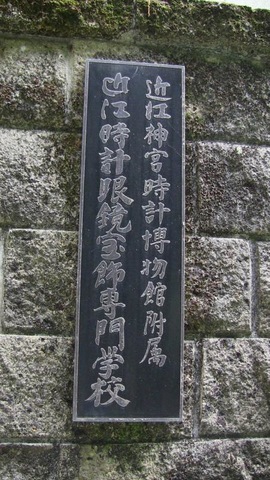 近江神宮時計博物館附属
近江時計眼鏡宝飾専門学校